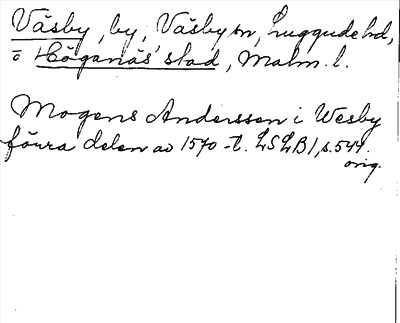 Väsby, by, Väsby sn, Luggude hd,
ö Höganäs stad, Malm. l.
Mogens Anderssen i Wesby
förra delen av 1570-t. LSLB1, s. 544.
orig.